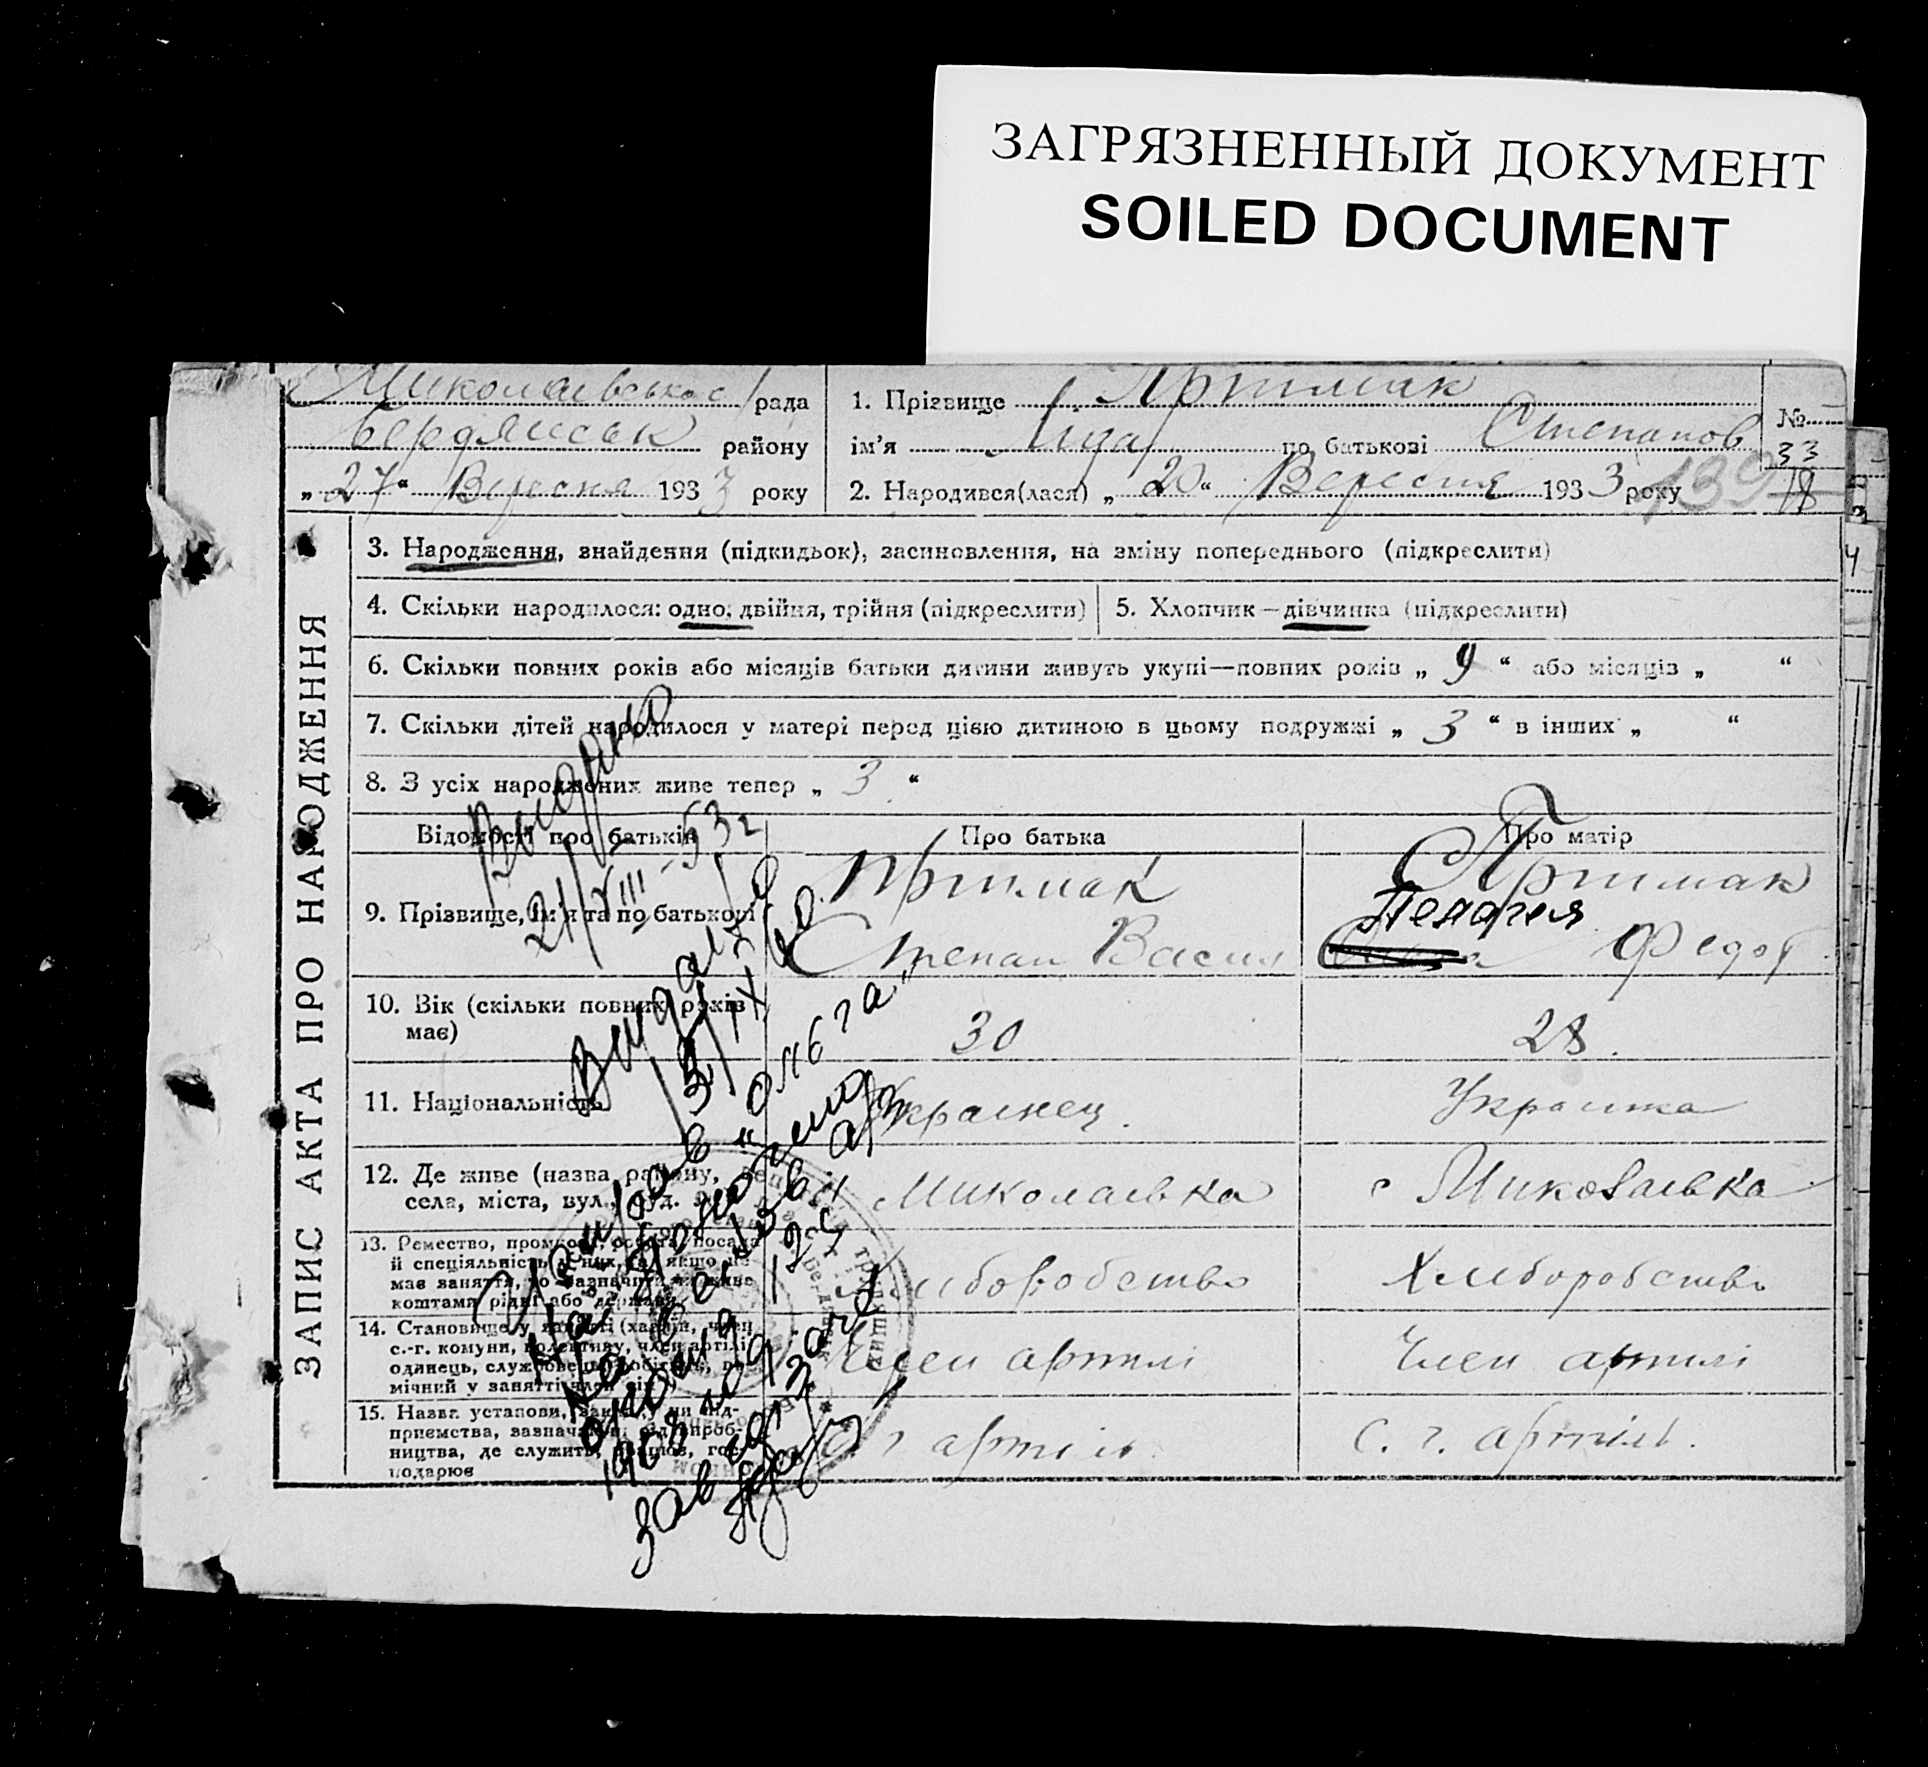 ЗАГРЯЗНЕННЫЙ ДОКУМЕНТ
SOILED DOCUMENT
Миколаевською рада
Бердянськ району
„27“ Вересня 1933 року
1. Прізвище Примак
ім'я по батькові Степанов
2. Народився(лася) „20“ Вересня 1933 року
139
№
33
18
ЗАПИС АКТА ПРО НАРОДЖЕННЯ
3. Народження, знайдення (підкидьок), засиновлення, на зміну попереднього (підкреслити)
4. Скільки народилося: одно, двійня, трійня (підкреслити)
5. Хлопчик—дівчинка (підкреслити)
6. Скільки повних років або місяців батьки дитини живуть укупі—повних років „9“ або місяців „ “
7. Скільки дітей народилося у матері перед цією дитиною в цьому подружжі „3“ в інших „ “
8. З усіх народжених живе тепер „3“
Відомості про батьків
Про батька
Про матір
9. Прізвище, ім'я та по батькові
Примак
Степан Васил
Примак
Пелагея
Федот
10. Вік (скільки повних років має)
30
28
11. Національність
Украінец.
Украінка
12. Де живе (назва району, села, міста, вул.,
Миколаівка
с Миколаівка
13. Ремество, промисел, робота, посада
й спеціяльність
має заняття, то зазначити
коштами рідні або держави
Хлиборобство
Хлиборобство
14. Становище у занятті (хазяїн, член
с.-г. комуни, колективу, член артілі
одинець, службовець, робітник, по-
мічний у занятті член сім'ї)
Член артилі
Член артилі
15. Назва установи,
приємства, зазначаючи вироб-
ництва, де служить, працює, гос-
подарює
с. г артіль
с. г. артіль.
Видано
21/VIII-53 г
Видано
3/IX 60
"Ольга"